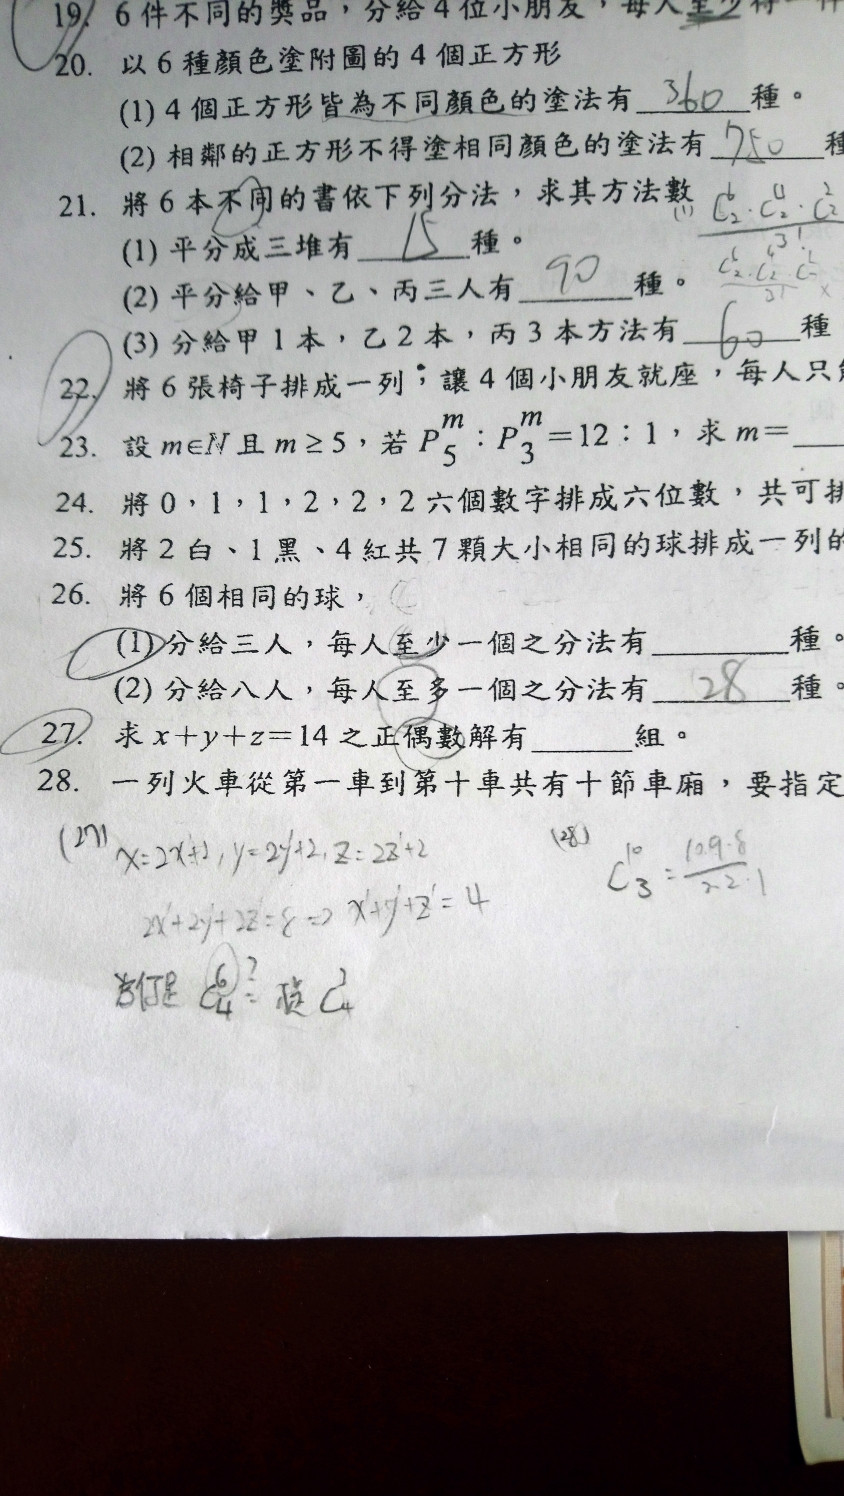 19. 6件不同的獎品，分給4位小朋友，每人至少得一件
20. 以6種顏色塗附圖的4個正方形
(1) 4個正方形皆為不同顏色的塗法有 360 種。
(2) 相鄰的正方形不得塗相同顏色的塗法有 750 種
21. 將6本不同的書依下列分法，求其方法數 (1) C⁶₂·C⁴₂·C²₂ / 3!
(1) 平分成三堆有 15 種。
(2) 平分給甲、乙、丙三人有 90 種。
(3) 分給甲1本，乙2本，丙3本方法有 60 種
22. 將6張椅子排成一列，讓4個小朋友就座，每人只
23. 設 m∈N 且 m≥5，若 P^m_5 : P^m_3 = 12 : 1，求 m=
24. 將0，1，1，2，2，2六個數字排成六位數，共可排
25. 將2白、1黑、4紅共7顆大小相同的球排成一列的
26. 將6個相同的球，
(1) 分給三人，每人至少一個之分法有 種。
(2) 分給八人，每人至多一個之分法有 28 種。
27. 求 x+y+z=14 之正偶數解有 組。
28. 一列火車從第一車到第十車共有十節車廂，要指定
(27) x=2x'+2, y=2y'+2, z=2z'+2
2x'+2y'+2z'=8 => x'+y'+z'=4
(28) C¹⁰₃ = 10.9.8
C⁶₄ ? C³₄